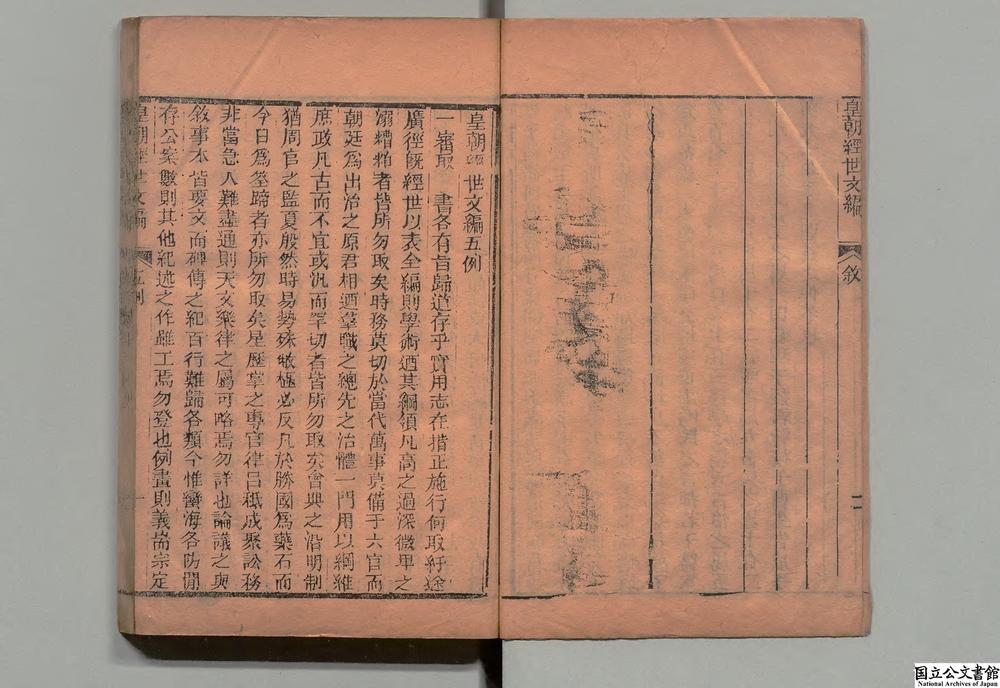 皇朝經世文編
敘
二
皇朝經世文編五例
一審取　書各有旨歸道存乎實用志在措正施行何取紆途
廣徑旣經世以表全編則學術迺其綱領凡高之過深微卑之
溺糟粕者皆所勿取矣時務莫切於當代萬事莫備于六官而
朝廷爲出治之原君相迺羣職之總先之治體一門用以綱維
庶政凡古而不宜或汎而罕切者皆所勿取矣會典之沿明制
猶周官之監夏殷然時易勢殊敝極必反凡於勝國爲藥石而
今日爲筌蹄者亦所勿取矣星歷掌之專官律呂秖成聚訟務
非當急人難盡通則天文樂律之屬可略焉勿詳也論議之與
敘事本皆要文而碑傳之紀百行難歸各類今惟蠻海各防閒
存公案數則其他紀述之作雖工焉勿登也例畫則義耑宗定
皇朝經世文編
五例
一
国立公文書館
National Archives of Japan